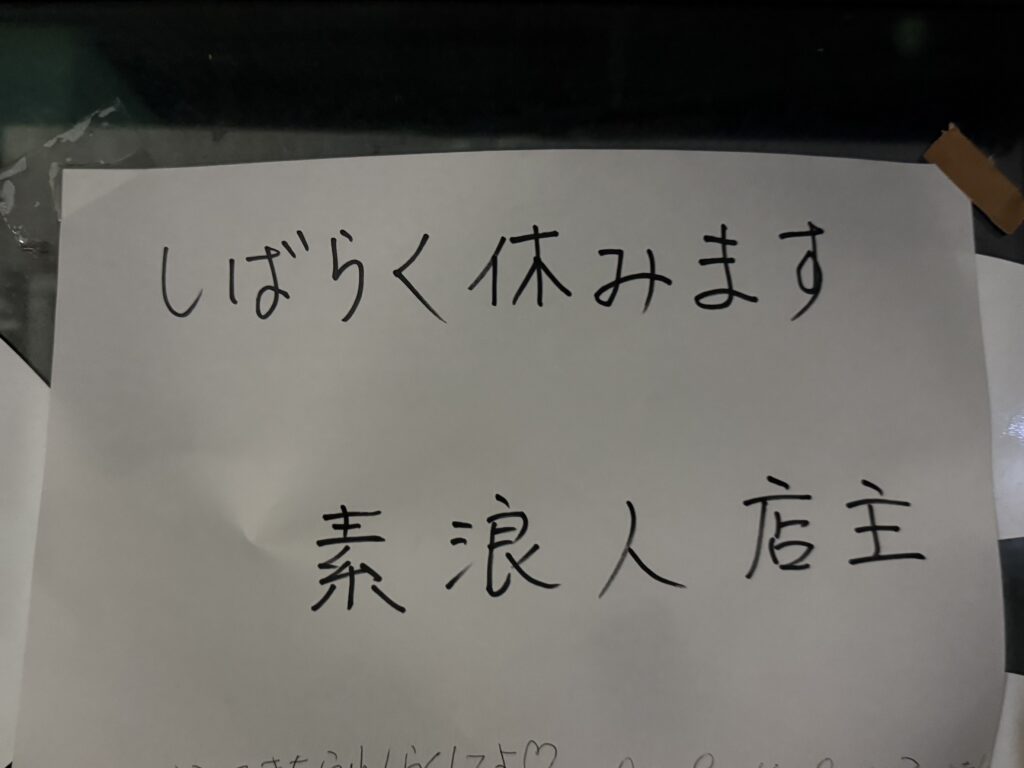 しばらく休みます
素浪人 店主